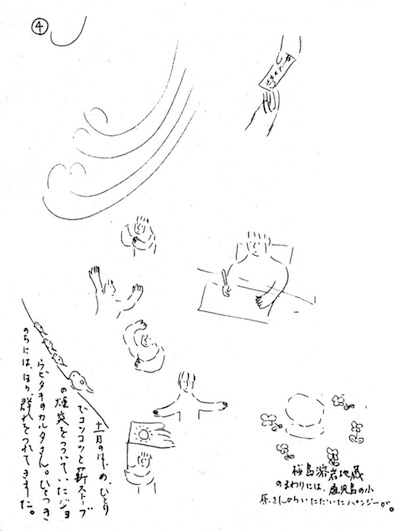 ④
十一月のはじめ、ひとり
でコツコツと薪ストーブ
の煙突をつついていたジョ
ウビタキのカルタさん。ひとつき
のちには、はや群れをつれてきました。
桜島溶岩地蔵
のまわりには、鹿児島の小
原さんからいただいたパンジーが。